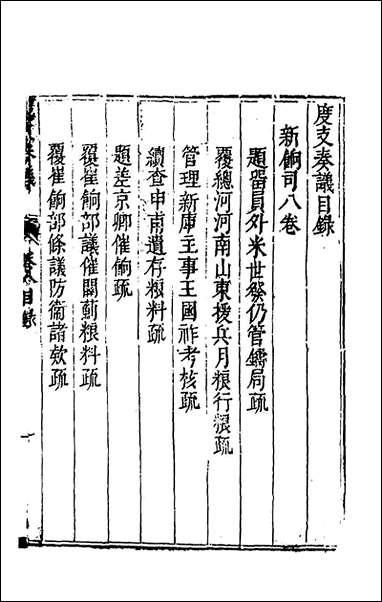 度支奏議目録
新餉司八卷
題留員外米世發仍管鑄局疏
覆總河河南山東援兵月粮行粮疏
管理新庫主事王國祚考核疏
續查申甫遺存粮料疏
題差京卿催餉疏
覆崔餉部議催關薊粮料疏
覆崔餉部條議防衞諸欵疏
卷八目録